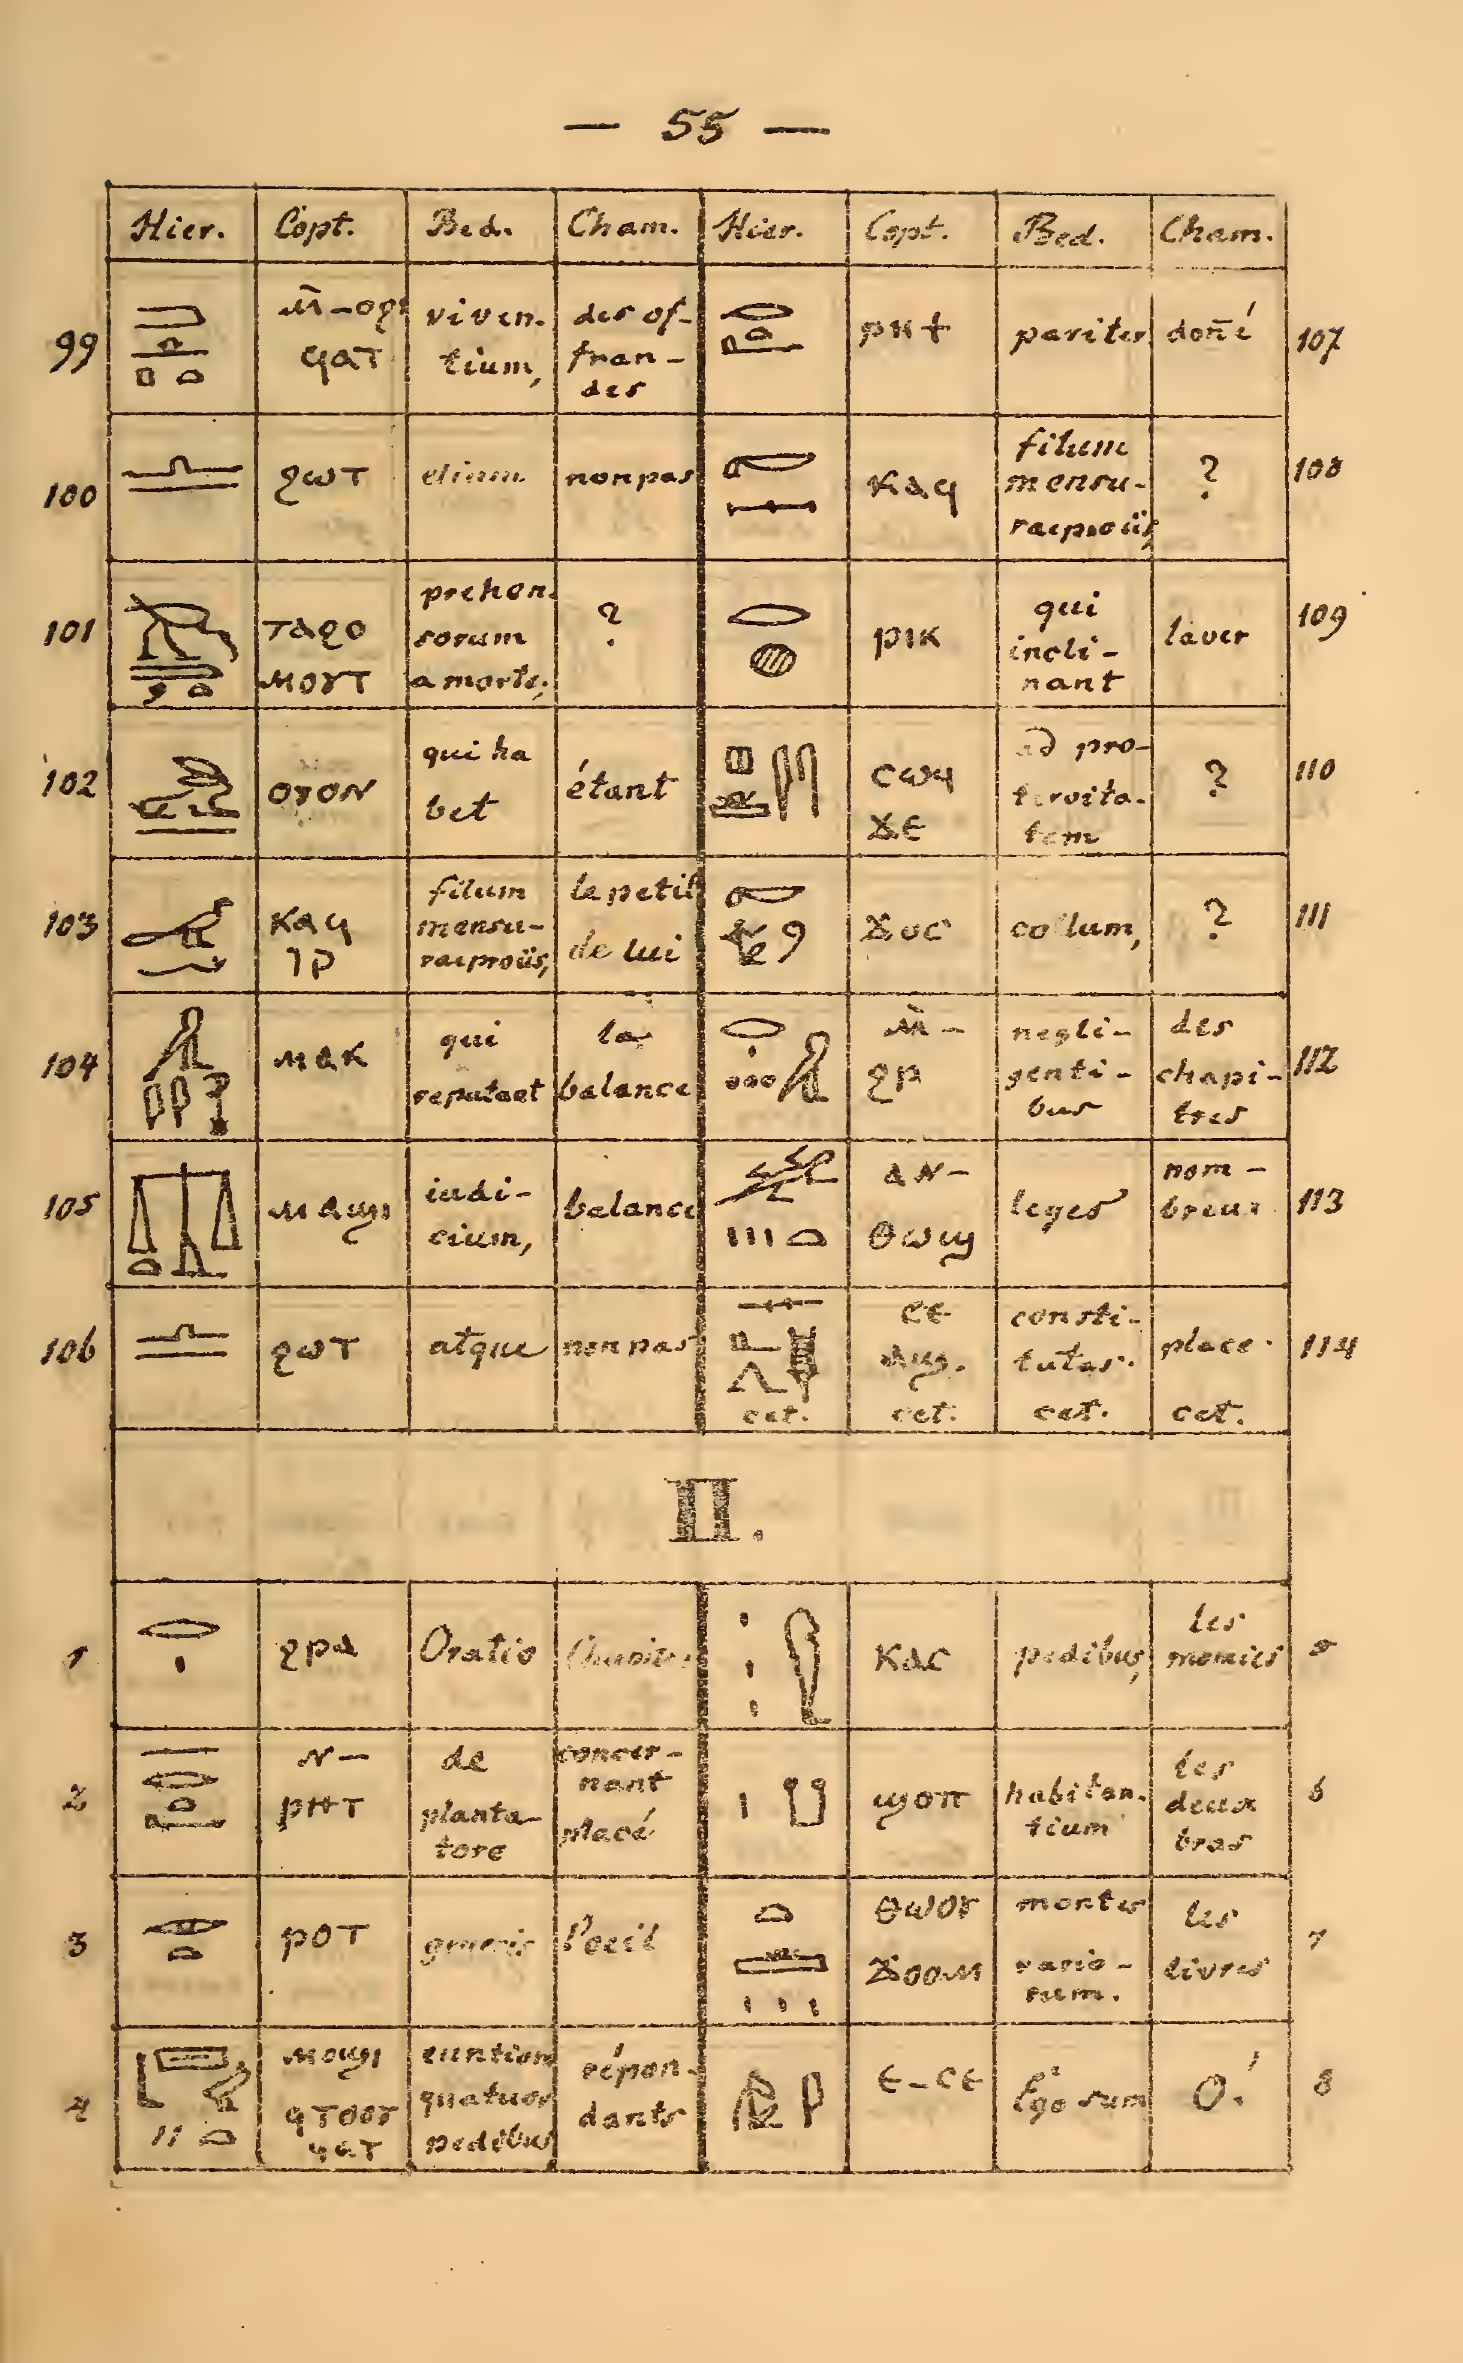 — 55 —
Hier. Copt. Bed. Cham. Hier. Copt. Bed. Cham.
99 ϥⲁⲧ viven-tium, des of-fran-des
ⲣⲏϯ pariter don̄é 107
100 ϩⲱⲧ etiam non pas
ⲕⲁϥ filum mensu- ? 108
101 ⲧⲁϩⲟ ⲙⲟⲩⲧ prehen-sorum a morte; ?
ⲣⲓⲕ qui incli-nant laver 109
102 ⲟⲩⲟⲛ qui ha bet étant
ⲥⲱϥ ϫⲉ ad pro-tervita-tem ? 110
103 ⲕⲁϥ filum mensu- le petit de lui
ϫⲟⲥ collum, ? 111
104 ⲙⲁⲕ qui reputant la balance
ⲙ̄- ϩⲣ negli-genti-bus des chapi-tres 112
105 ⲙⲁϣⲓ iudi-cium, balance
ⲁⲛ- ⲑⲱϣ leges nom-breux 113
106 ϩⲱⲧ atque non pas
cet. ⲥⲉ cet. consti-tutas. cet. place. cet. 114
II.
1 ϩⲣⲁ Oratio
ⲕⲁⲥ pedibus, les momies 5
2 ⲛ- ⲣⲏⲧ de planta-tore concer-nant placé
ϣⲟⲡ habitan-tium les deux bras 6
3 ⲣⲟⲧ generis l'oeil
ⲑⲱⲟⲩ ϫⲟⲟⲙ montes vario-rum. les livres 7
4 ⲙⲟϣⲓ ϥⲧⲟⲟⲩ ϥⲁⲧ euntium quatuor pedibus répon-dants
ⲉ-ⲥⲉ Ego sum O! 8